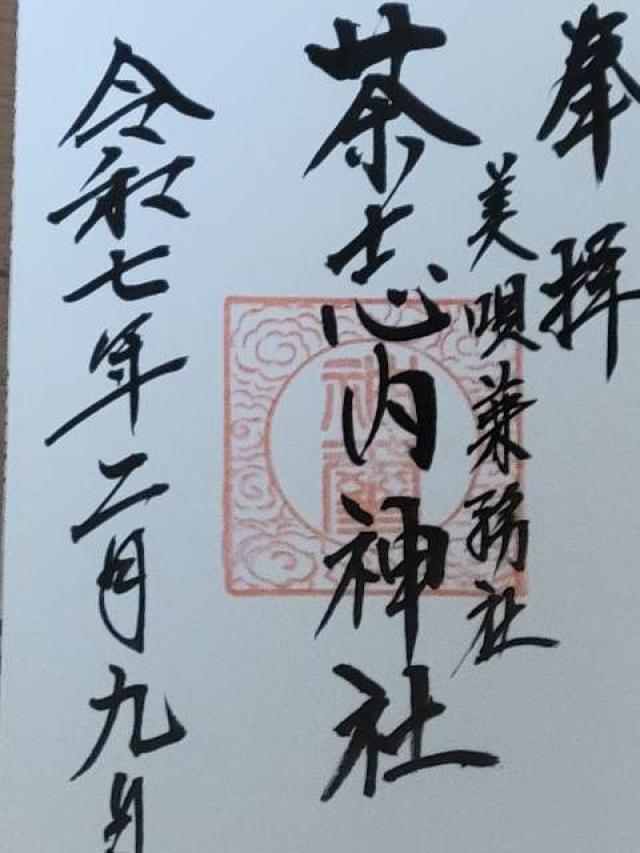 奉拝
美唄兼務社
茶志内神社
令和七年二月九日